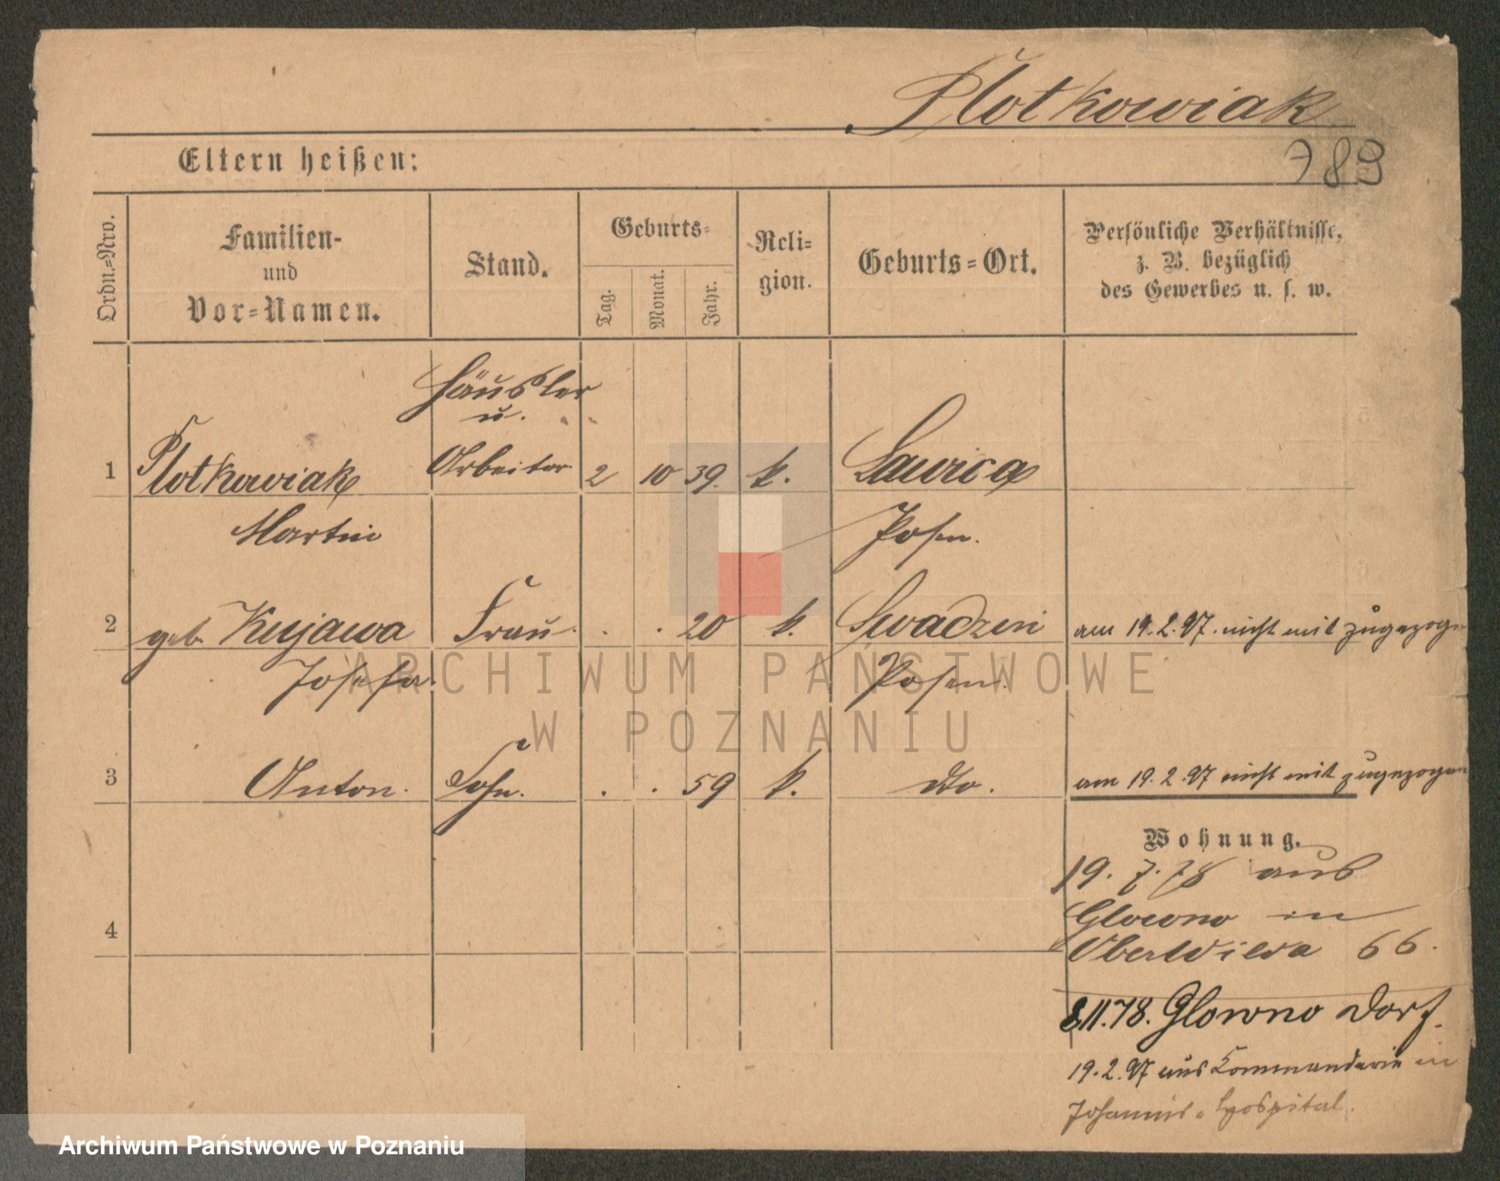 Plotkowiak
789
Eltern heißen:
Ordn.=Nro.
Familien-
und
Vor=Namen.
Stand.
Geburts=
Tag.
Monat.
Jahr.
Reli=
gion.
Geburts=Ort.
Persönliche Verhältnisse,
z. B. bezüglich
des Gewerbes u. s. w.
Häusler
u.
1 Plotkowiak Arbeiter 2 10 39. k. Lawica
Martin Posen.
2 geb. Kujawa Frau . . 20 k. Swadzin am 19.2.97. nicht mit zugezogen
Josefa Posen.
3 Anton. Sohn. . . 59 k. do. am 19.2.97 nicht mit zugezogen
Wohnung.
19.7.78 aus
Glowno in
4 OberWilda 66.
8.11.78. Glowno Dorf.
19.2.97 aus Commanderie in
Johannis-Hospital.
ARCHIWUM PAŃSTWOWE
W POZNANIU
Archiwum Państwowe w Poznaniu